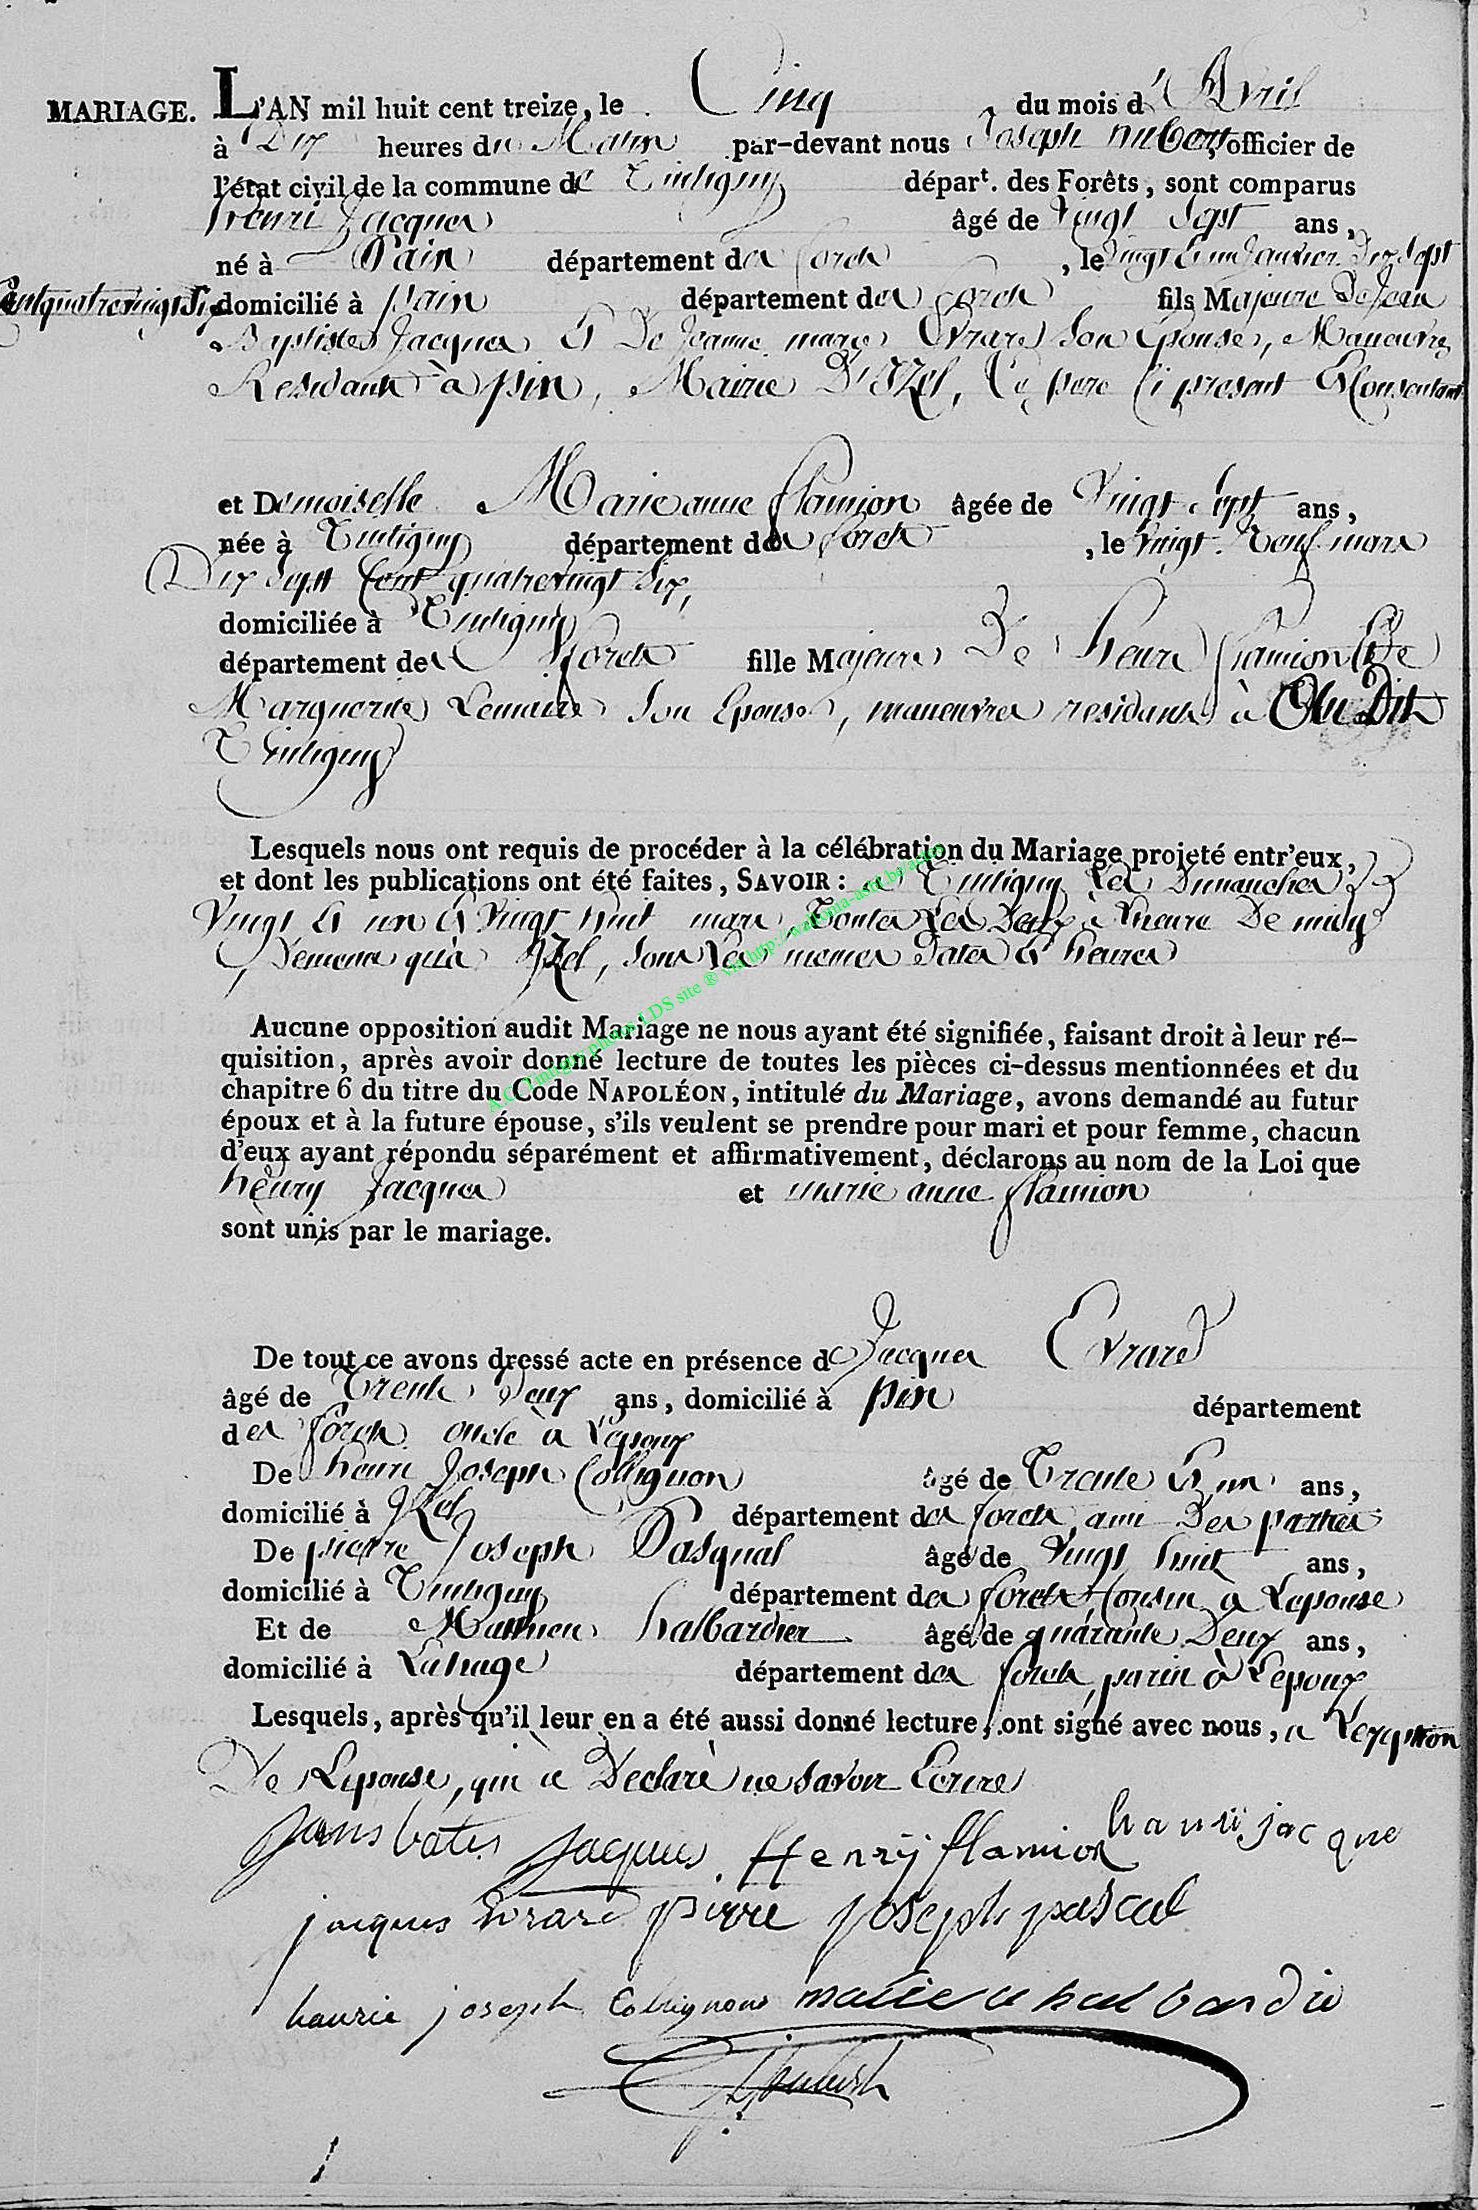 MARIAGE. L'AN mil huit cent treize, le Cinq du mois d'Avril
à Dix heures du Matin par-devant nous Joseph hubert officier de
l'état civil de la commune de Tintigny départ. des Forêts, sont comparus
henri Jacques âgé de vingt Sept ans,
né à Pain département des forets, le vingt Et un Janvier Dix Sept
Cent quatrevingt Six domicilié à pain département des forets fils Majeure De Jean
Baptiste Jacques Et De Jeanne marie Evrard Son Epouse, Maneuvres
Residants à pin, Mairie D'IZel, Le pere Ci present Et Consentant
et Demoiselle Marie anne flamion âgée de Vingt Sept ans,
née à Tintigny département des forets, le vingt Neuf mars
Dix Sept Cent quatrevingt Six,
domiciliée à Tintigny
département des forets fille Majeure De henri flamion Et De
Marguerite Lemaire Son Epouse, maneuvres residants à Du Dit
Tintigny
Lesquels nous ont requis de procéder à la célébration du Mariage projeté entr'eux,
et dont les publications ont été faites, SAVOIR: à Tintigny Les Dimanches
Vingt Et un Et Vingt huit mars, Toutes Les Deux à l'heure De midy
Dememe qu'à IZel, Sous les memes Dates Et heures
Aucune opposition audit Mariage ne nous ayant été signifiée, faisant droit à leur ré-
quisition, après avoir donné lecture de toutes les pièces ci-dessus mentionnées et du
chapitre 6 du titre du Code NAPOLÉON, intitulé du Mariage, avons demandé au futur
époux et à la future épouse, s'ils veulent se prendre pour mari et pour femme, chacun
d'eux ayant répondu séparément et affirmativement, déclarons au nom de la Loi que
henry Jacques et marie anne flamion
sont unis par le mariage.
De tout ce avons dressé acte en présence de Jacques Evrard
âgé de Trente Deux ans, domicilié à pin département
des forets oncle à L'epoux
De henri Joseph Collignon âgé de Trente Et un ans,
domicilié à IZel département des forets ami Des parties
De pierre Joseph Pasqual âgé de Vingt huit ans,
domicilié à Tintigny département des forets Cousin a Lepouse
Et de Mathieu halbardier âgé de quarante Deux ans,
domicilié à Lahage département des forets, parin à L'epoux
Lesquels, après qu'il leur en a été aussi donné lecture, ont signé avec nous, a L'exeption
De Lepouse, qui à Declaré ne Savoir Ecrire
Jans batis Jacques Henrÿ flamion hanri jacque
jacques Evrard pierre joseph pascal
haurie joseph Collignons matieu halbardie
J hubert
A.C. Tintigny photos LDS site ® via http://wallonia-asbl.be/actes